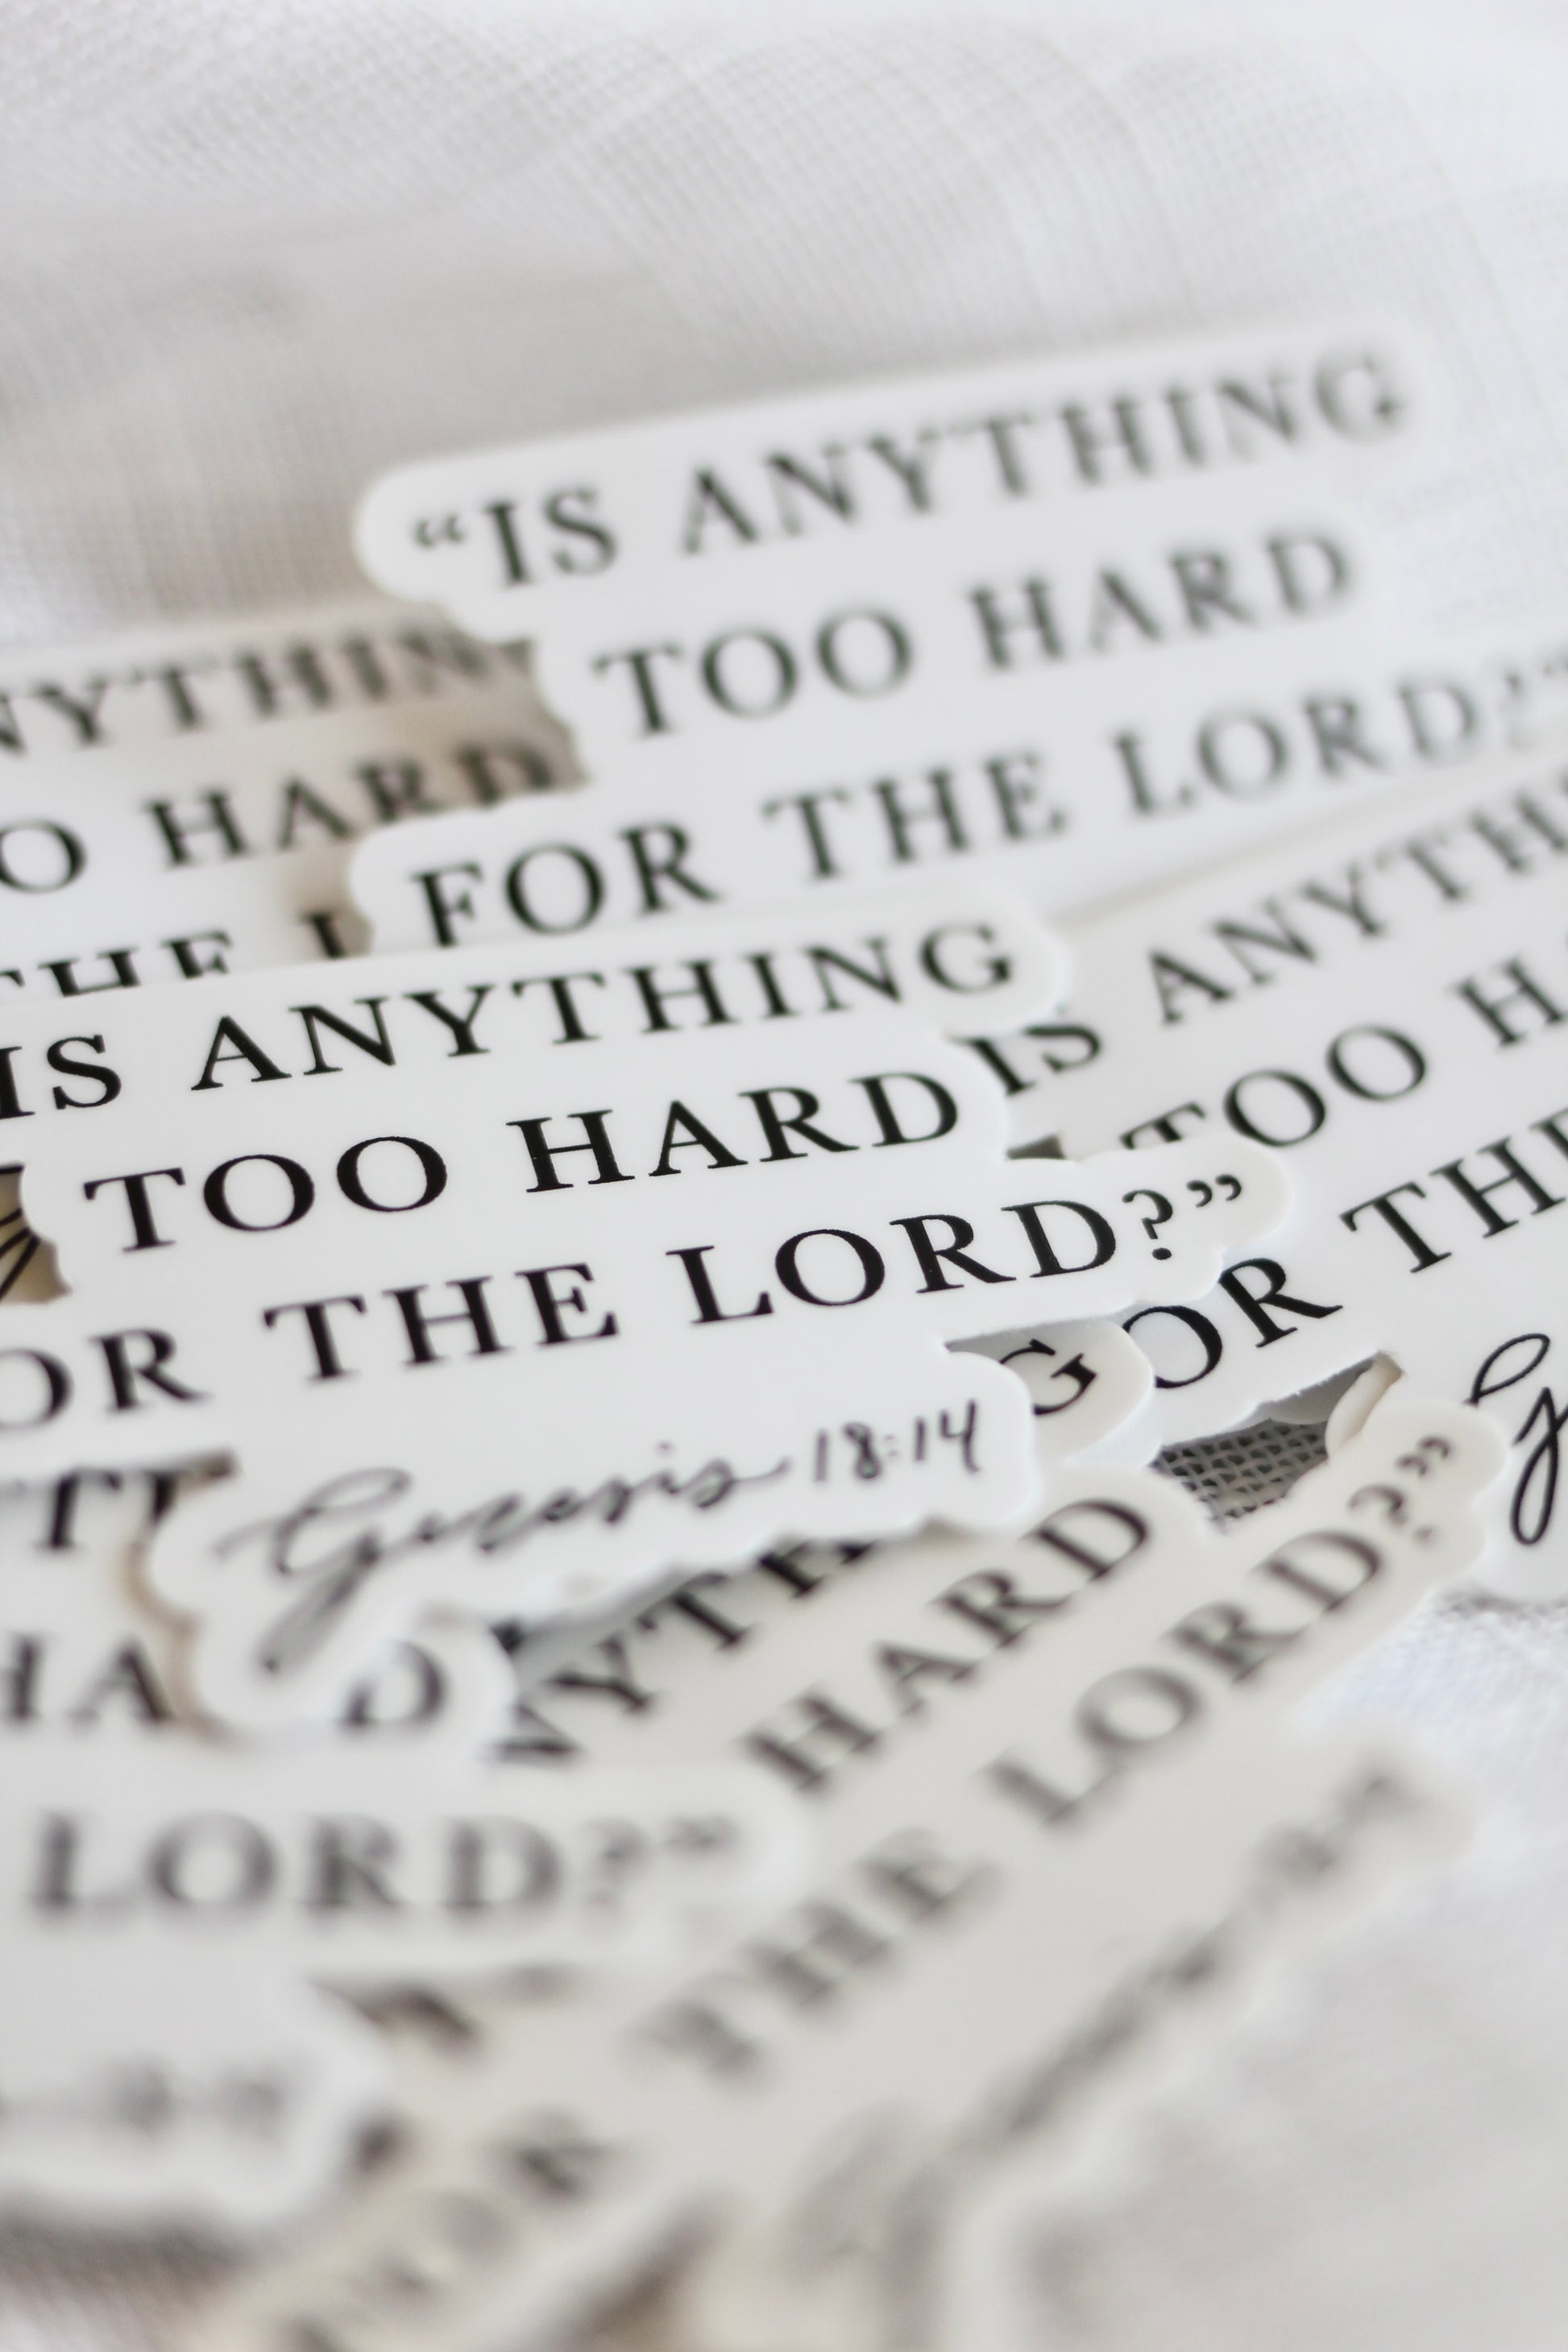 “IS ANYTHING
TOO HARD
FOR THE LORD?”
NYTHIN
O HARD
THE L
IS ANYTHING
TOO HARD
OR THE LORD?”
Genesis 18:14
IS ANYTH
TOO HA
OR THE
G
G
HA D
LORD?”
NYTH
HARD
THE LORD?”